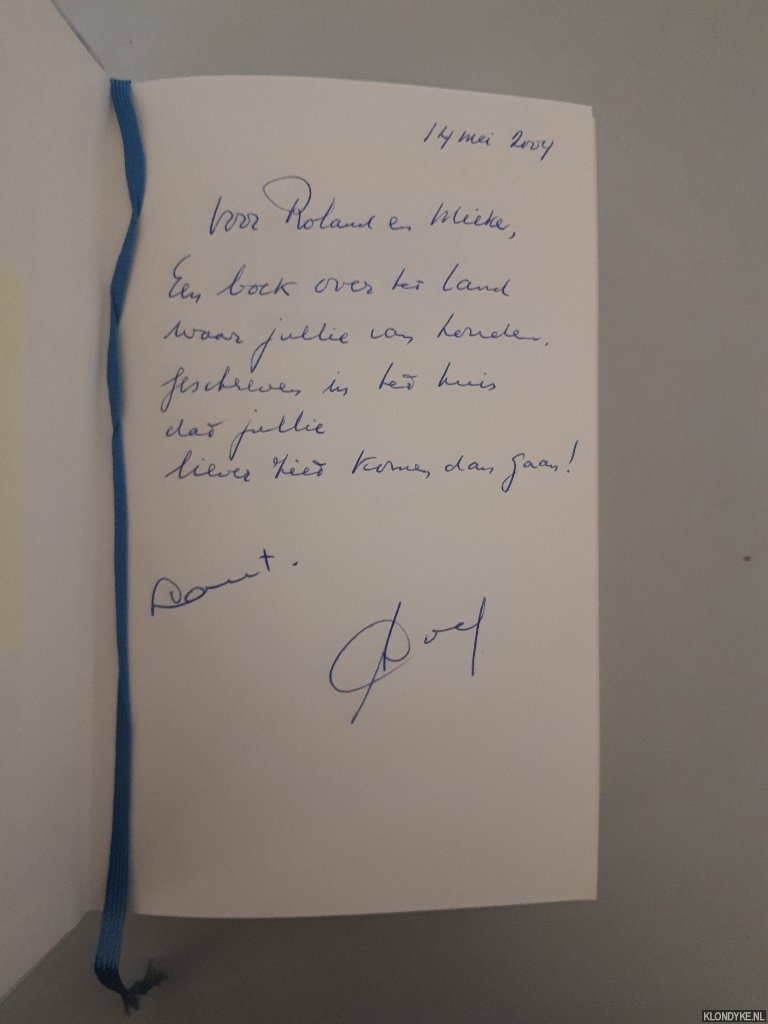 14 mei 2004
Voor Roland en Mieke,
Een boek over het land
waar jullie van houden,
geschreven in het huis
dat jullie
liever ziet komen dan gaan!
KLONDYKE.NL